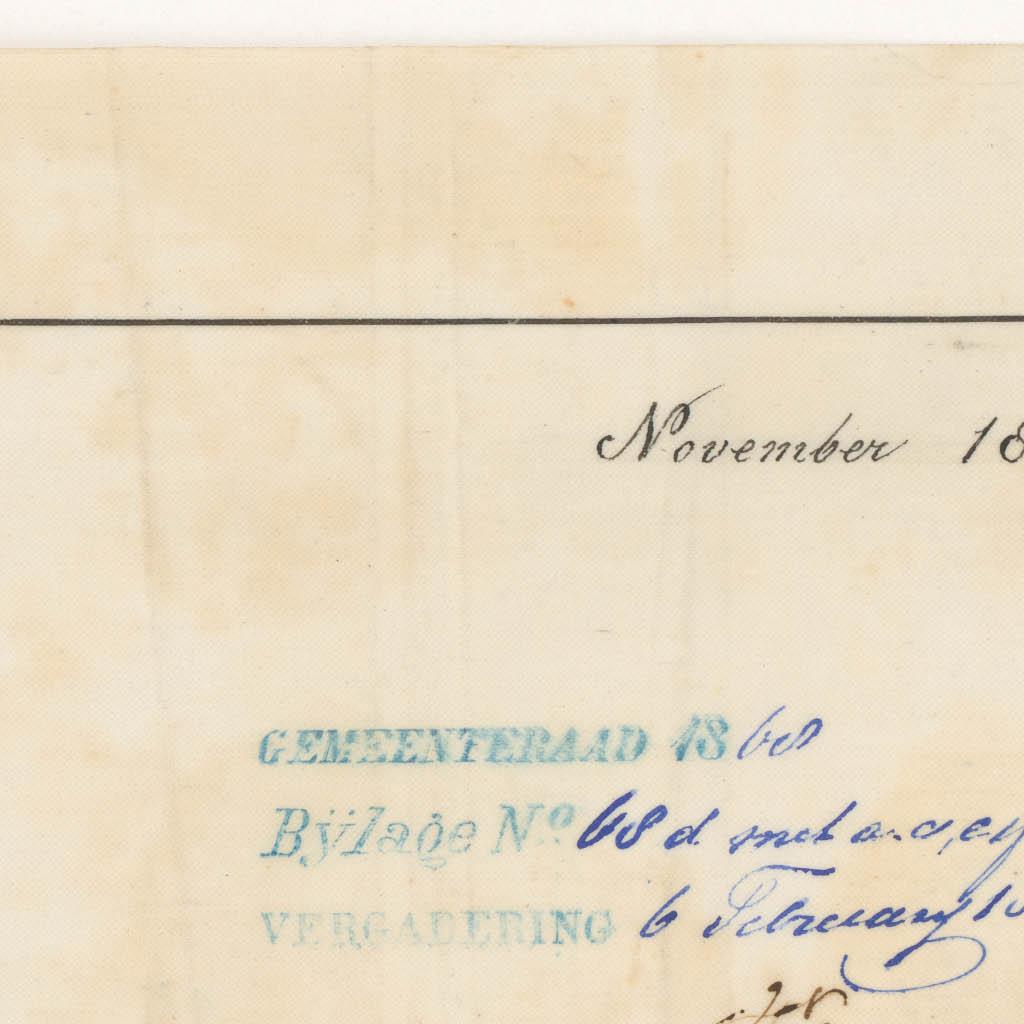 November 18
GEMEENTERAAD 1868
Bÿlage Nº 68 d met a.c, e
VERGADERING 6 February 18